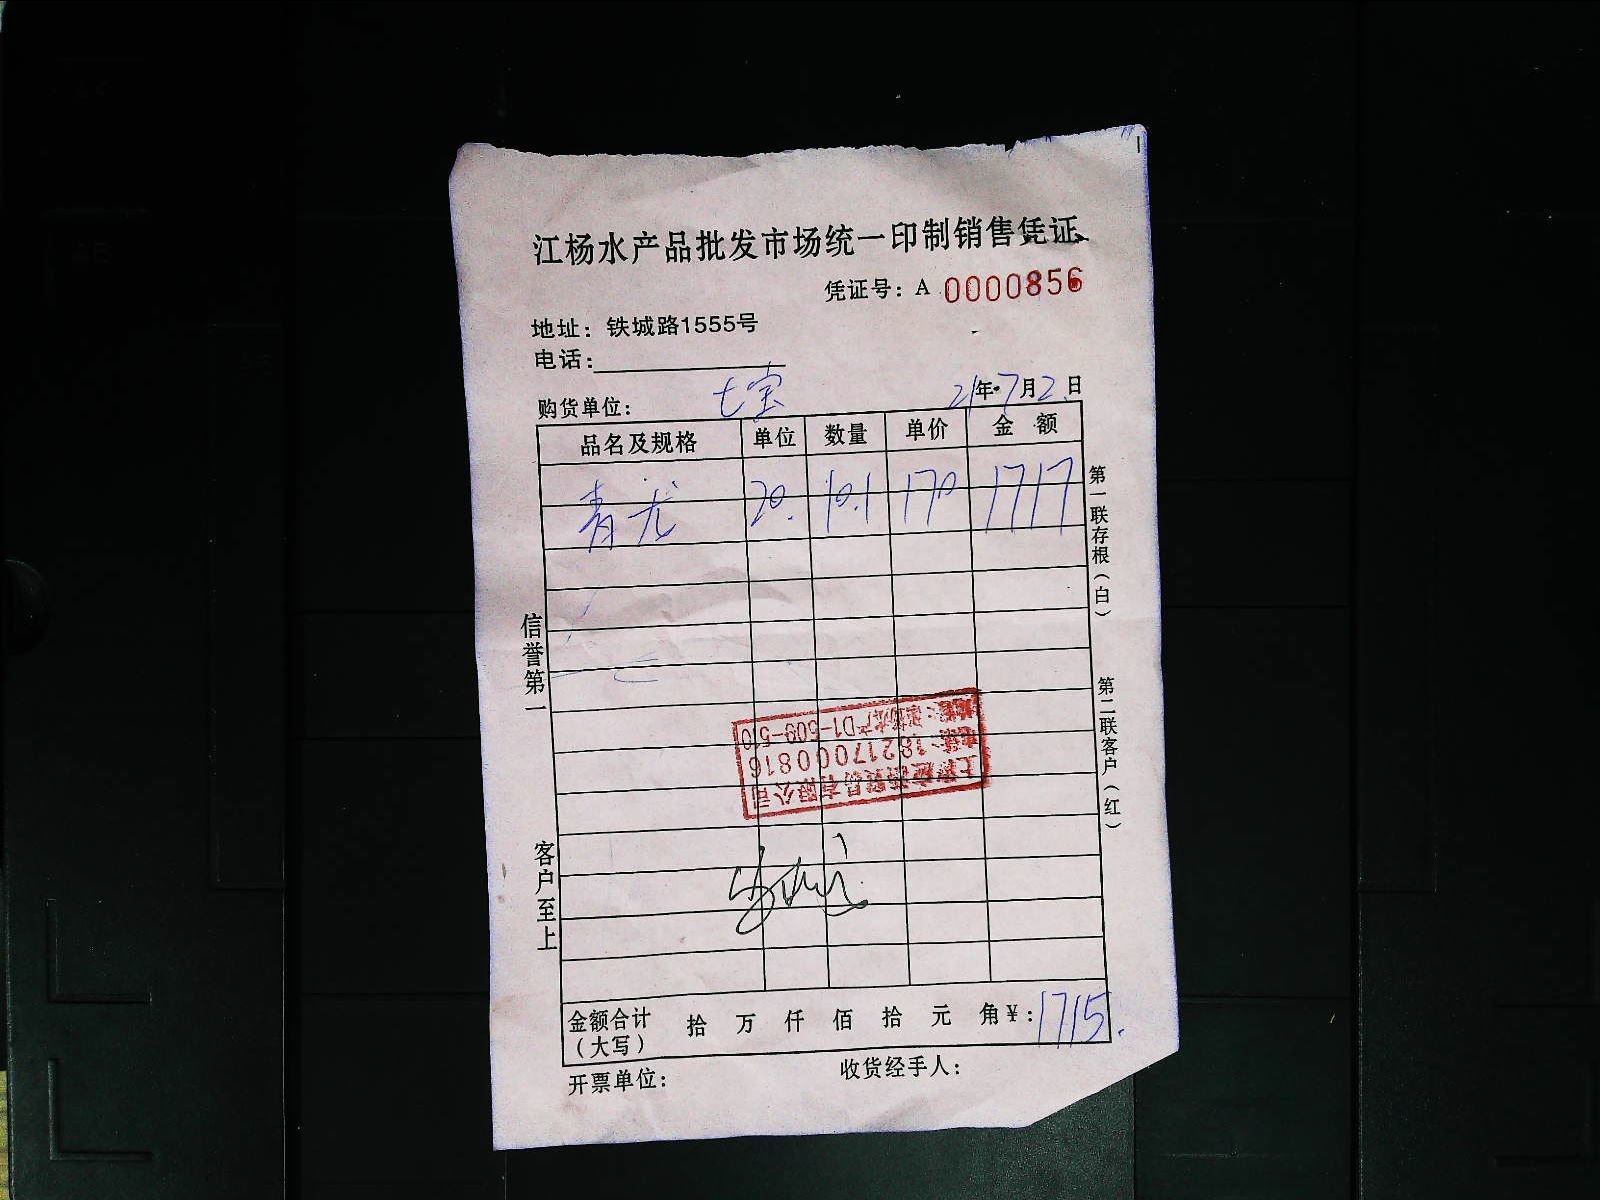 江杨水产品批发市场统一印制销售凭证
凭证号：A 0000856
地址：铁城路1555号
电话：
购货单位： 七宝 21年7月2日
品名及规格 单位 数量 单价 金额
青龙 20. 10.1 170 1717
信誉第一
客户至上
第一联存根（白）
第二联客户（红）
电话：18217000816
金额合计（大写） 拾 万 仟 佰 拾 元 角 ¥：1715.
开票单位：
收货经手人：